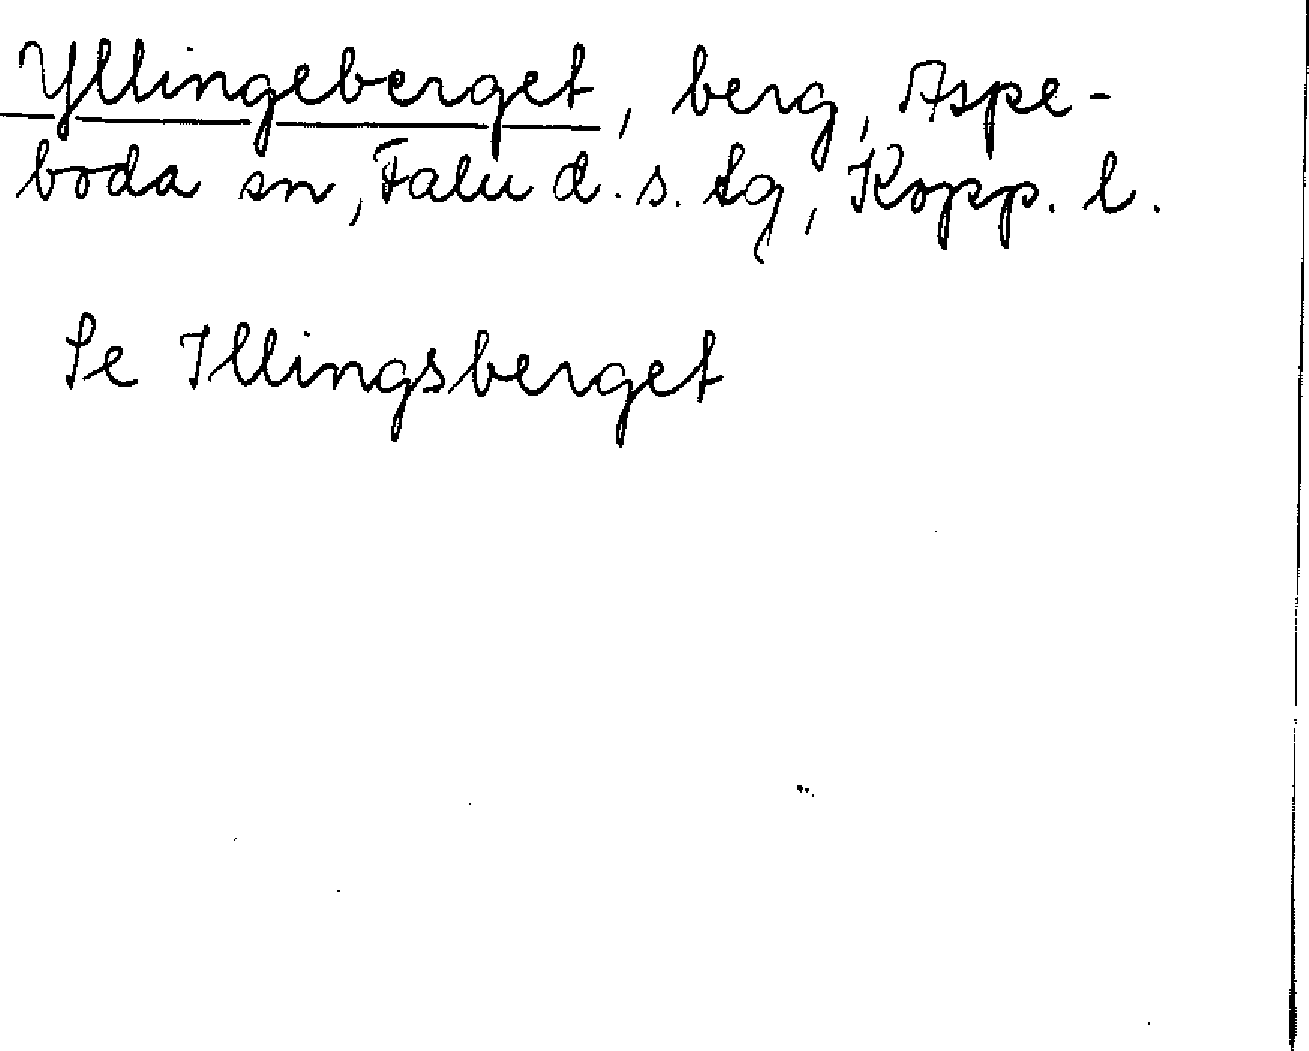 Yllingeberget, berg, Aspe-
boda sn, Falu d. s. tg, Kopp. l.
Se Illingsberget